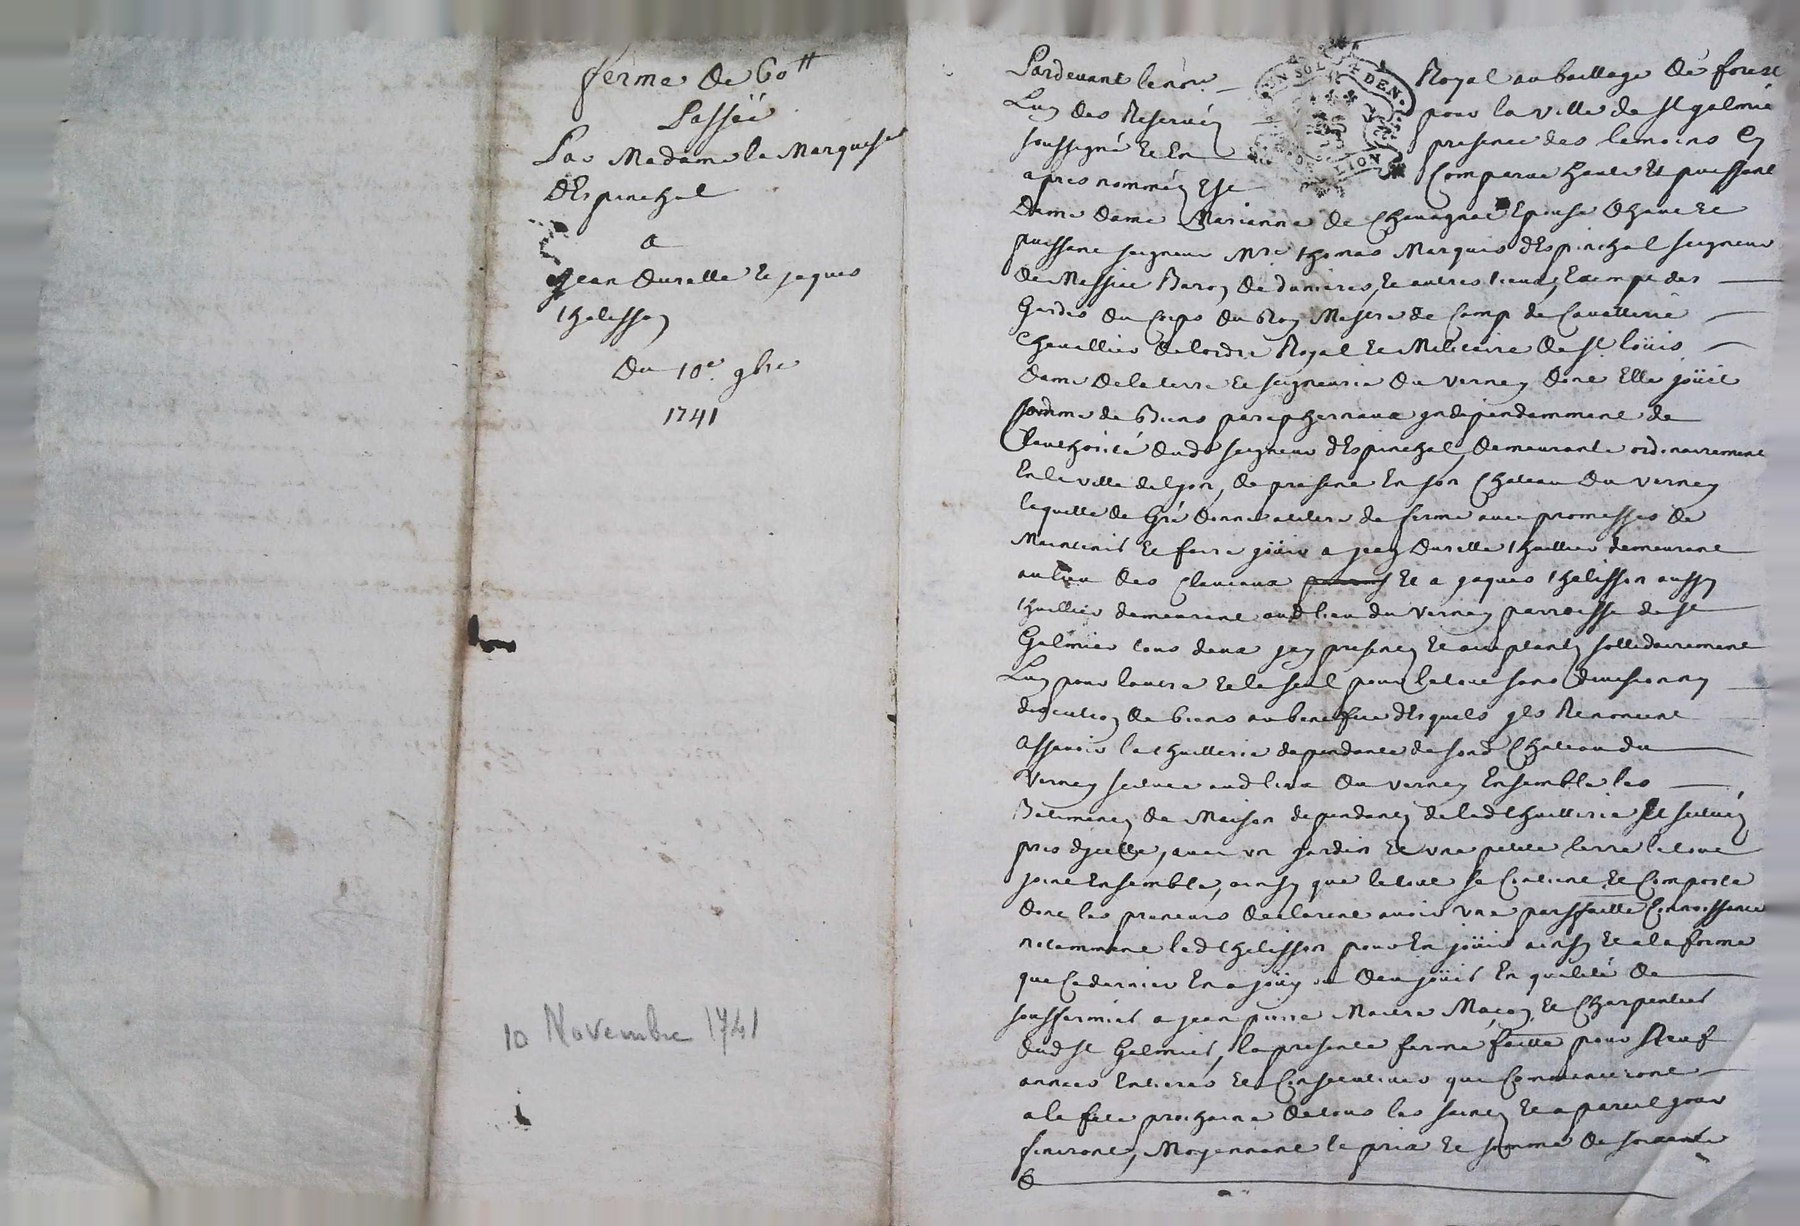 ferme de 60 ᵗᵗ
Passéé
Par Madame la Marquise
dEspinchal
a
Jean Durelle Et jaques
thelisson
Du 10e. 9bre
1741
10 Novembre 1741
Pardevant le nore. Royal au bailliage de forest
Lun des Reservéz pour la ville de st galmie
soussigné Et En presence des temoins Cy
apres nomméz Est Comparue haute Et puissante
Dame Dame Marianne de Chavagnac Epouse dhaut Et
puissant seigneur Mre thomas Marquis dEspinchal seigneur
de Massiac Baron de dunieres, Et autres lieux, Exempt des
Gardes du Corps du Roy Mestre de Camp de Cavallerie
Chevallier de lordre Royal Et Militaire de st. loüis
Dame de la terre Et seigneurie du verney dont Elle joüit
comme de Biens parephernaux independemment de
lauthorité dud. seigneur dEspinchal, demeurante ordinairement
En la ville de lyon, de present En son Chateau du verney
laquelle de Gré donne a titre de ferme avec promesses de
Maintenir Et faire joüir a jean Durelle thuillier demeurant
au lieu des Claveaux Et a jaques thelisson aussy
thuillier demeurant aud lieu du verney parroisse de st
Galmier tous deux jcy presents Et acceptants sollidairement
Lun pour lautre Et le seul pour le tout sans division ny
discution de biens au benefice desquels jls Renoncent
Assavoir la thuillerie dependante de sond Chateau du
Verney scituée aud lieu du verney Ensemble les
Batiments de Maison dependants de lad thuillerie Et scitués
pres dycelle, avec un jardin Et une petite terre le tout
joint Ensemble, ainsy que le tout se Contient Et Comporte
dont les preneurs declarent avoir une parfaitte Connoissance
notamment led thelisson pour En joüir ainsy Et a la forme
que Ce dernier En a joüy ou deu joüir En qualité de
sousfermier a jean pierre Maitre Maçon Et Charpentier
dud st Galmier, la presente ferme faitte pour Neuf
années Entieres Et Consecutives que Commenceront
a la fete prochaine de tous les saints Et a pareil jour
finiront, Moyennant le prix Et somme de soixante